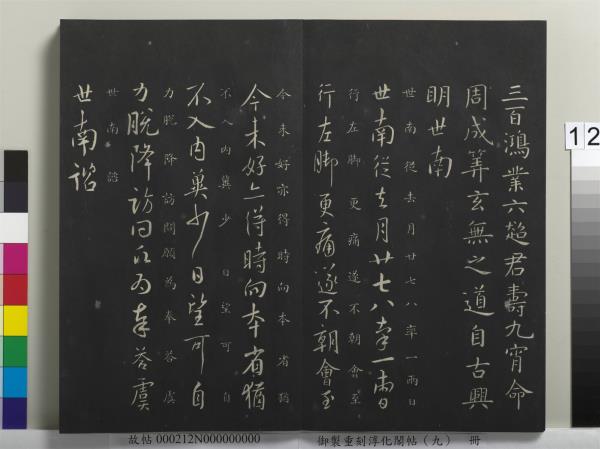 三百鴻業六超君壽九宵命
周成筭玄無之道自古興
明世南
世南從去月廿七八率一兩日
世南從去月廿七八率一兩日
行左脚更痛遂不朝會至
行左脚更痛遂不朝會至
今未好亦得時向本省猶
今未好亦得時向本省猶
不入內冀少日望可自
不入內冀少日望可自
力脫降訪問願為奉答虞
力脫降訪問願為奉答虞
世南諮
世南諮
12
故帖 000212N000000000 御製重刻淳化閣帖（九） 冊